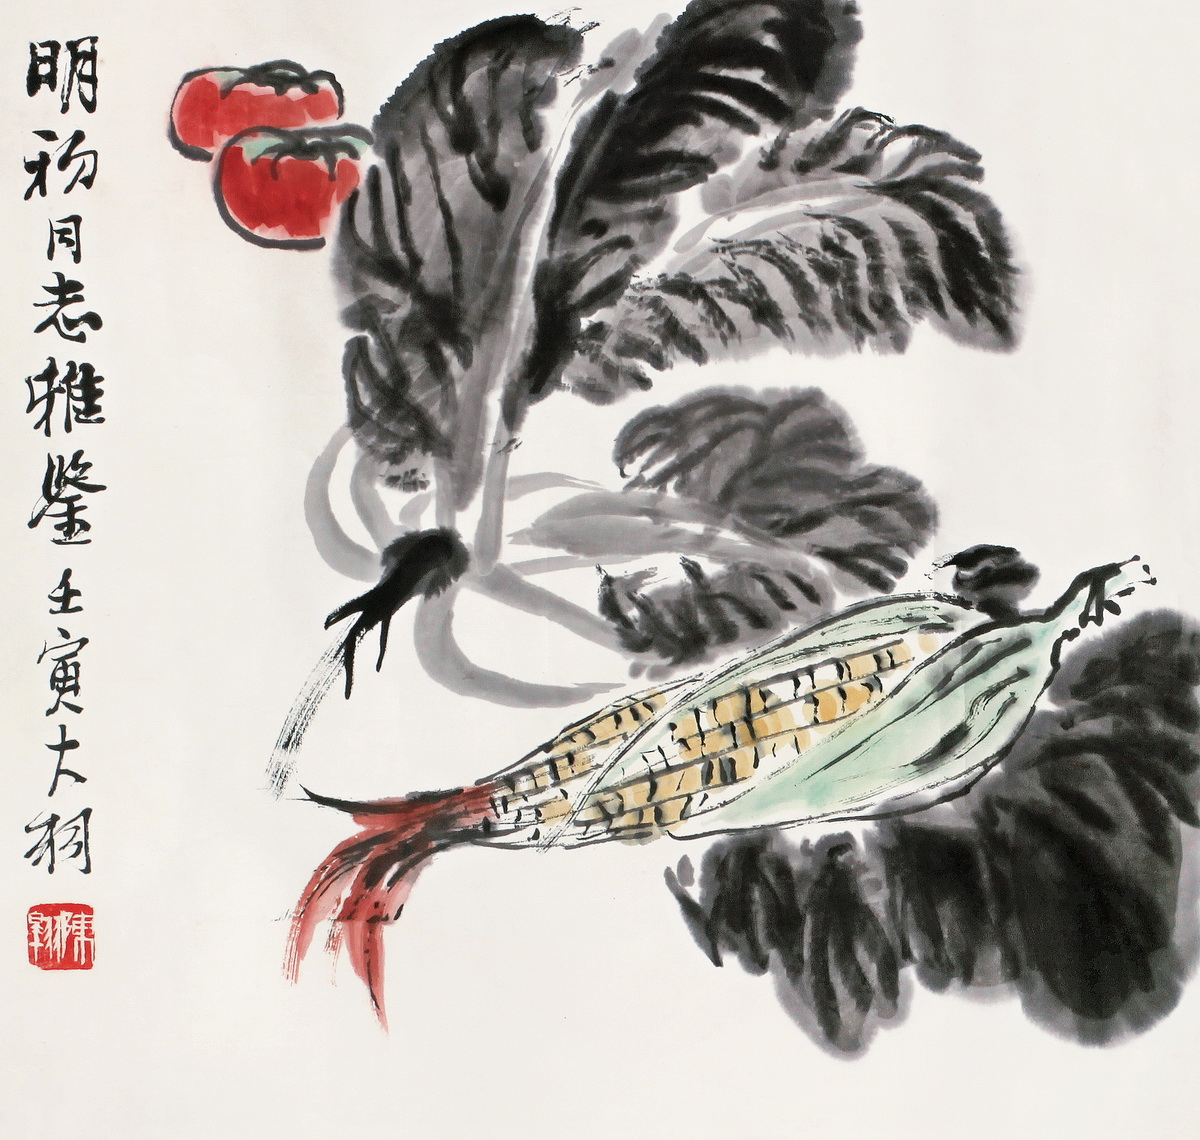 明初同志雅鉴壬寅大羽
陈翱